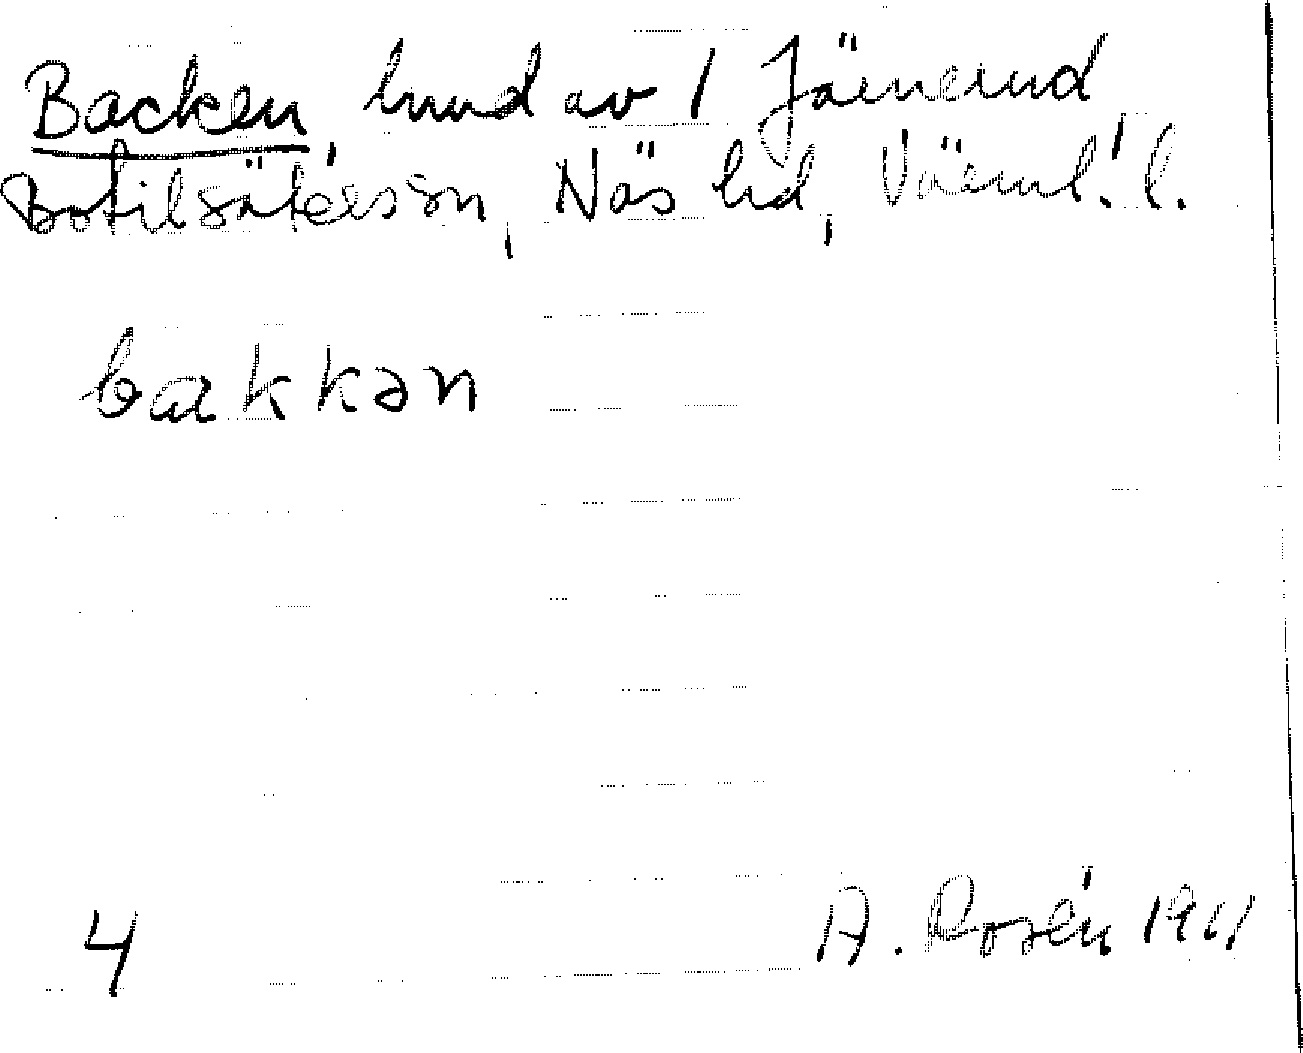 Backen, hmd av 1 Järnerud
Botilsäterssn, Näs hd, Värml. l.
bakkən
4
A. Rosén 1911